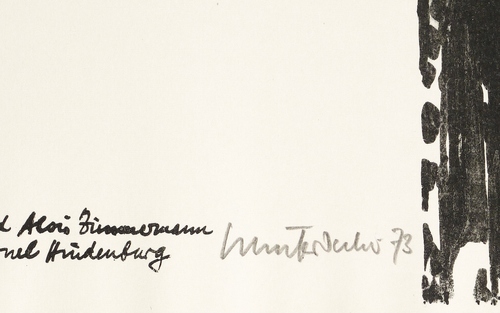 d Alois Zimmermann
nel Hindenburg
73